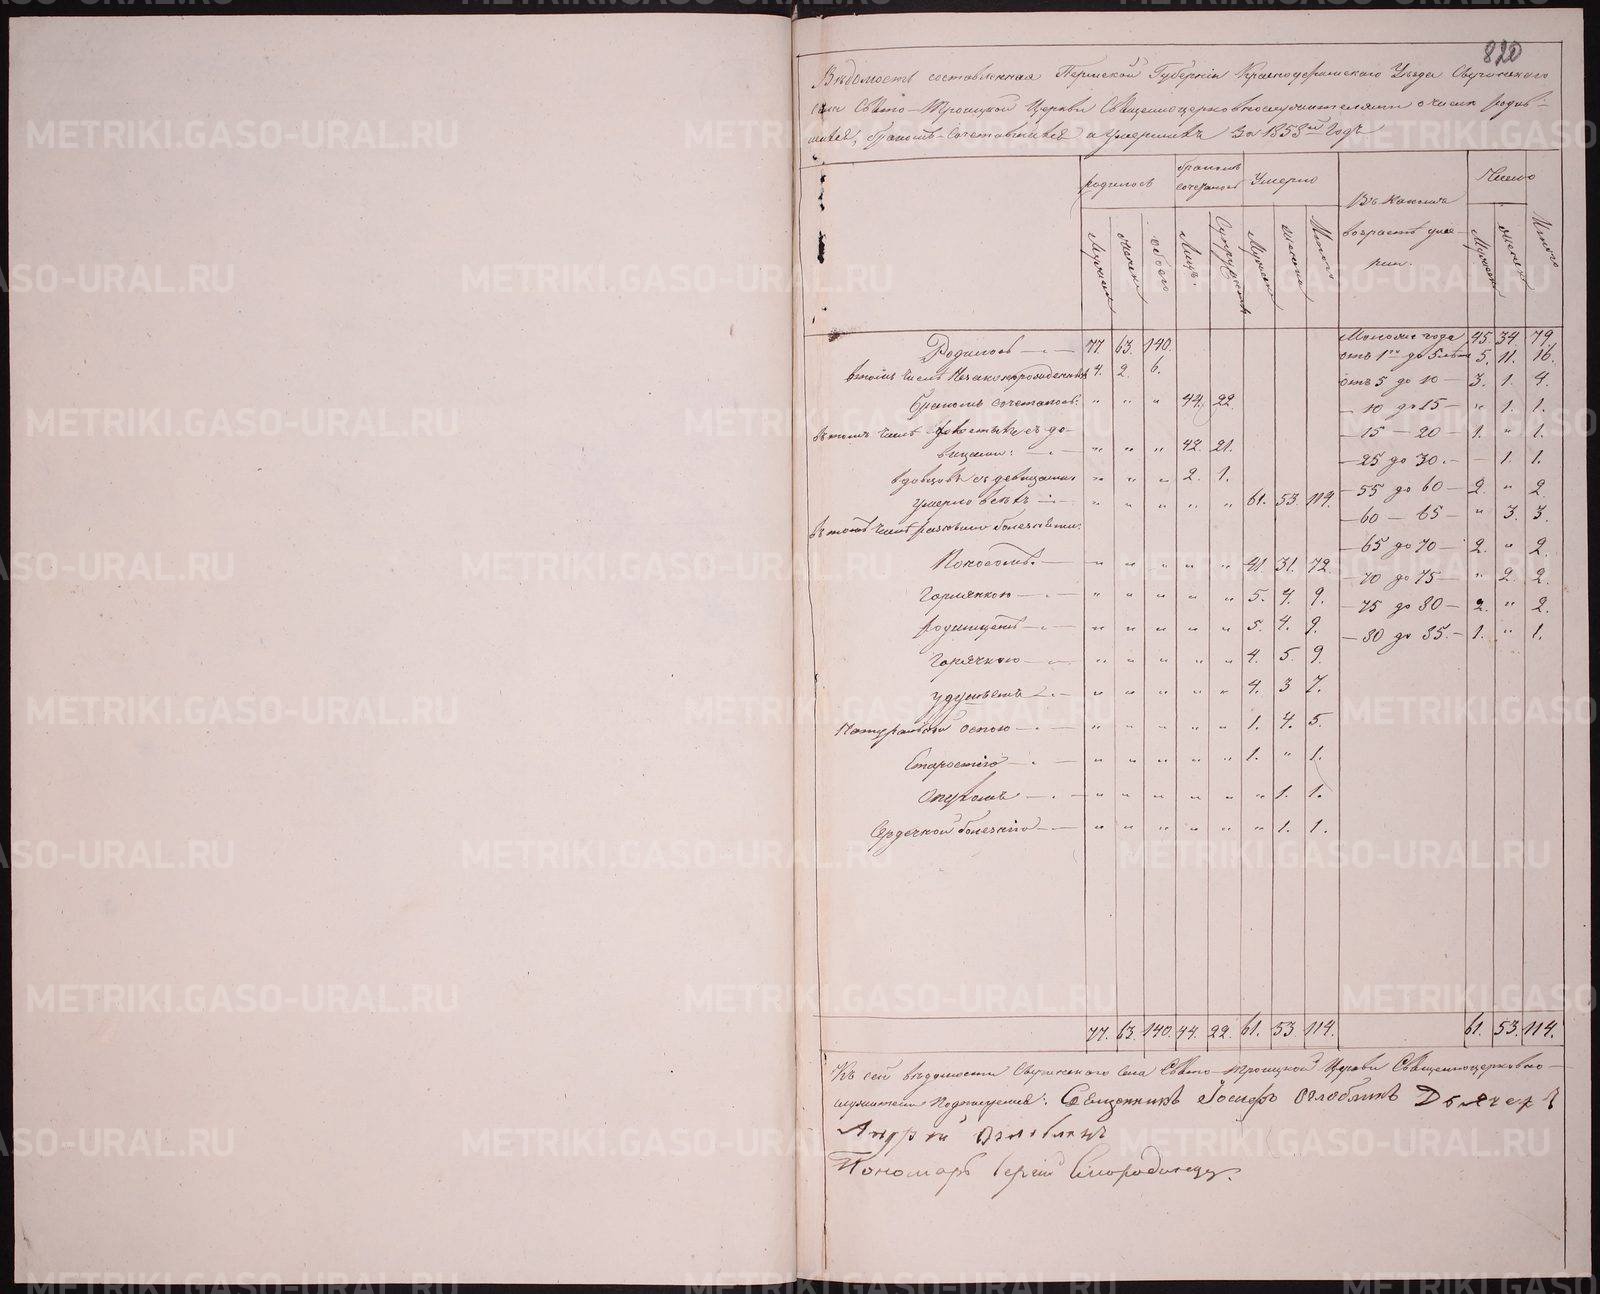 820
Вѣдомость составленная Пермской Губерніи Красноуфимскаго Уѣзда
села Свято-Троицкой Церкви Священноцерковнослужителями о числѣ родив-
шихся, бракомъ сочетавшихся и умершихъ За 1858й Годъ
родилось бракомъ сочеталось Умерло Въ какомъ возрастѣ умерли. Число
Мужеска женска обоего Лицъ. Супружествъ Мужеска женска Итого Мужеска женска Итого
Родилось 77. 63. 140. Моложе года 45. 34. 79.
втомъ числѣ Незаконнорожденныхъ 4. 2. 6. отъ 1го до 5 лѣтъ 5. 11. 16.
отъ 5 до 10 — 3. 1. 4.
Бракомъ сочеталось. „ „ „ 44. 22. — 10 до 15 — „ 1. 1.
Въ томъ числѣ — 15 — 20 — 1. „ 1.
вицами: „ „ „ 42. 21. — 25 до 30. — — 1. 1.
вдовцовъ съ девицами „ „ „ 2. 1.
Умерло всѣхъ „ „ „ „ „ 61. 53. 114. — 55 до 60 — 2. „ 2.
Въ томъ числѣ разными болезнями: — 60 — 65 — „ 3. 3.
— 65 до 70 — 2. „ 2.
Поносомъ. — „ „ „ „ „ 41. 31. 72. — 70 до 75 — „ 2. 2.
Горлянкою „ „ „ „ „ 5. 4. 9. — 75 до 80 — 2. „ 2.
Родимцемъ „ „ „ „ „ 5. 4. 9. — 80 до 85. — 1. „ 1.
Горячкою „ „ „ „ „ 4. 5. 9.
Удушьемъ „ „ „ „ „ 4. 3 7.
Натуральной оспою „ „ „ „ „ 1. 4. 5.
Старостію „ „ „ „ „ 1. „ 1.
Опухолью „ „ „ „ „ „ 1. 1.
Сердечной болезнію „ „ „ „ „ „ 1. 1.
77. 63. 140. 44. 22. 61. 53. 114. 61. 53. 114.
Къ сей вѣдомости села Свято-Троицкой Церкви Священноцерковно-
служители Подписуемся: Священникъ Іосифъ Оглоблинъ
Андрей Оглоблинъ
Пономарь Сергій Смородинцу.
METRIKI.GASO-URAL.RU